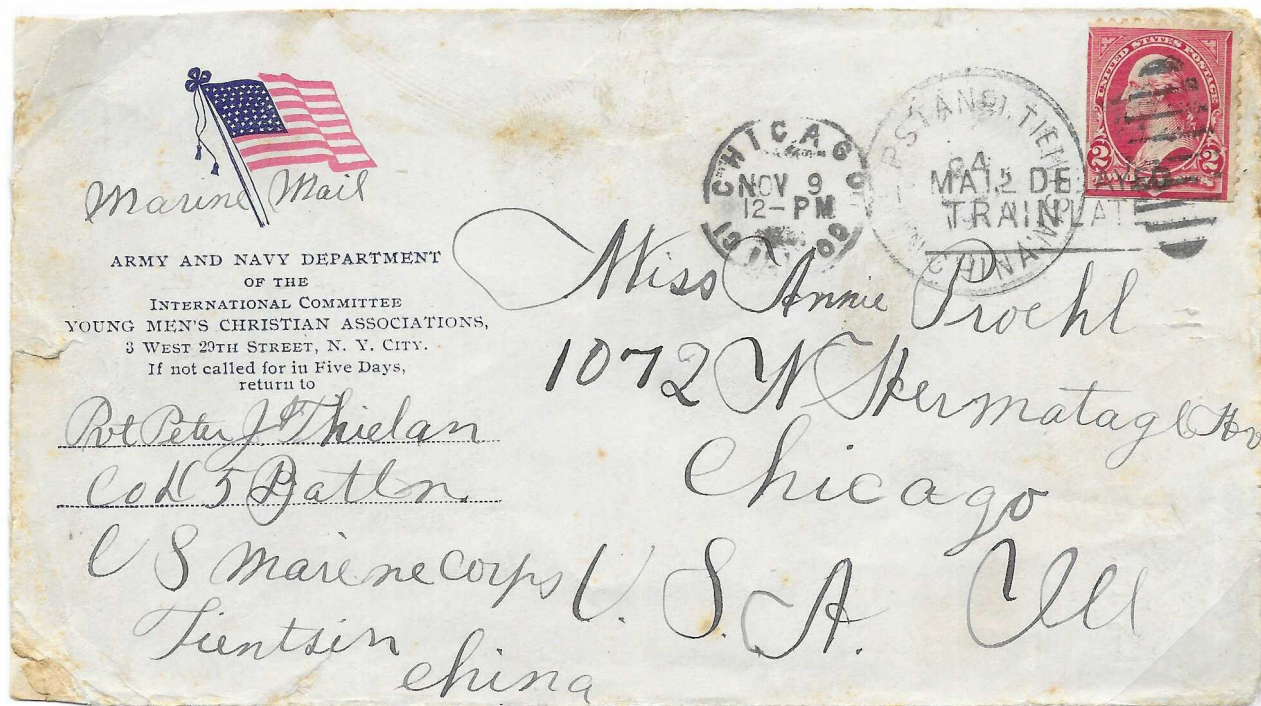 Marine Mail
ARMY AND NAVY DEPARTMENT
OF THE
INTERNATIONAL COMMITTEE
YOUNG MEN'S CHRISTIAN ASSOCIATIONS,
3 WEST 29TH STREET, N. Y. CITY.
If not called for in Five Days,
return to
Pvt Peter J Thielan
Co H 5 Batln.
U S marine corps
Tientsin
China
CHICAGO
NOV 9
12-PM
MAIL DELAYED
TRAIN LATE
TIEN
CHINA
UNITED STATES POSTAGE
2 2
Miss Annie Proehl
1072 N Hermatage Av
Chicago
U. S. A. Ill